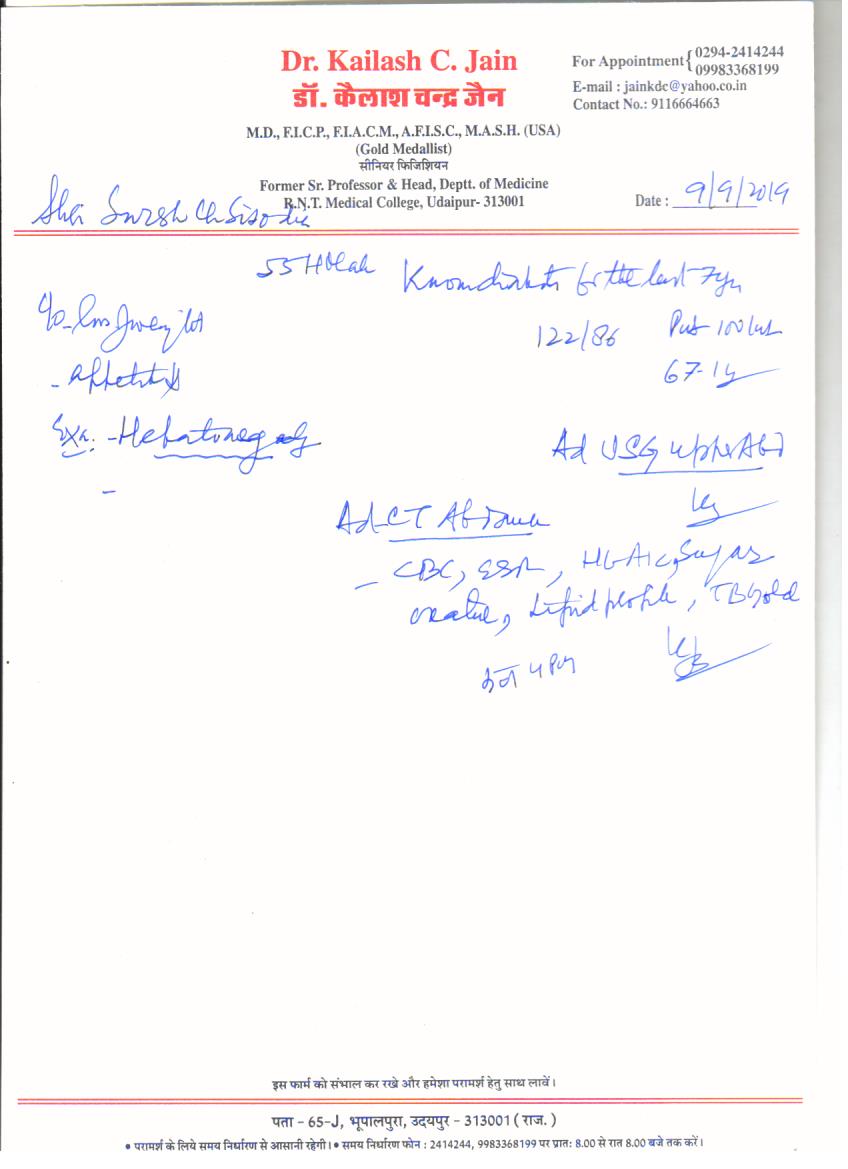 Dr. Kailash C. Jain
डॉ. कैलाश चन्द्र जैन
M.D., F.I.C.P., F.I.A.C.M., A.F.I.S.C., M.A.S.H. (USA)
(Gold Medallist)
सीनियर फिजिशियन
Former Sr. Professor & Head, Deptt. of Medicine
R.N.T. Medical College, Udaipur- 313001
For Appointment { 0294-2414244
09983368199
E-mail : jainkdc@yahoo.co.in
Contact No.: 9116664663
Date : 9/9/2019
Suresh Ch Sisodia
55
for the last 7yrs
122/86
Exa: - Hepatomegaly
Ad USG upper Abd
Ad CT Abdomen
- CBC, ESR, HbA1c, Sugar
Lipid profile, TB Gold
इस फार्म को संभाल कर रखे और हमेशा परामर्श हेतु साथ लावें।
पता - 65-J, भूपालपुरा, उदयपुर - 313001 ( राज. )
• परामर्श के लिये समय निर्धारण से आसानी रहेगी। • समय निर्धारण फोन : 2414244, 9983368199 पर प्रातः 8.00 से रात 8.00 बजे तक करें।